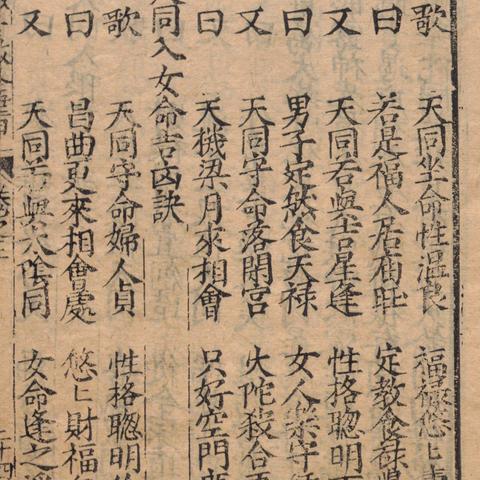 歌 天同坐命性溫良 福祿悠〻
曰 若是福人居廟旺 定教食祿
又 天同若與吉星逢 性格聰明
曰 男子定然食天祿 女人樂守
又 天同守命落閑宮 火陀殺合
曰 天機梁月來相會 只好空門
同入女命吉凶訣
歌 天同守命婦人貞 性格聰明
曰 昌曲更來相會處 悠〻財福
又 天同若與太陰同 女命逢之